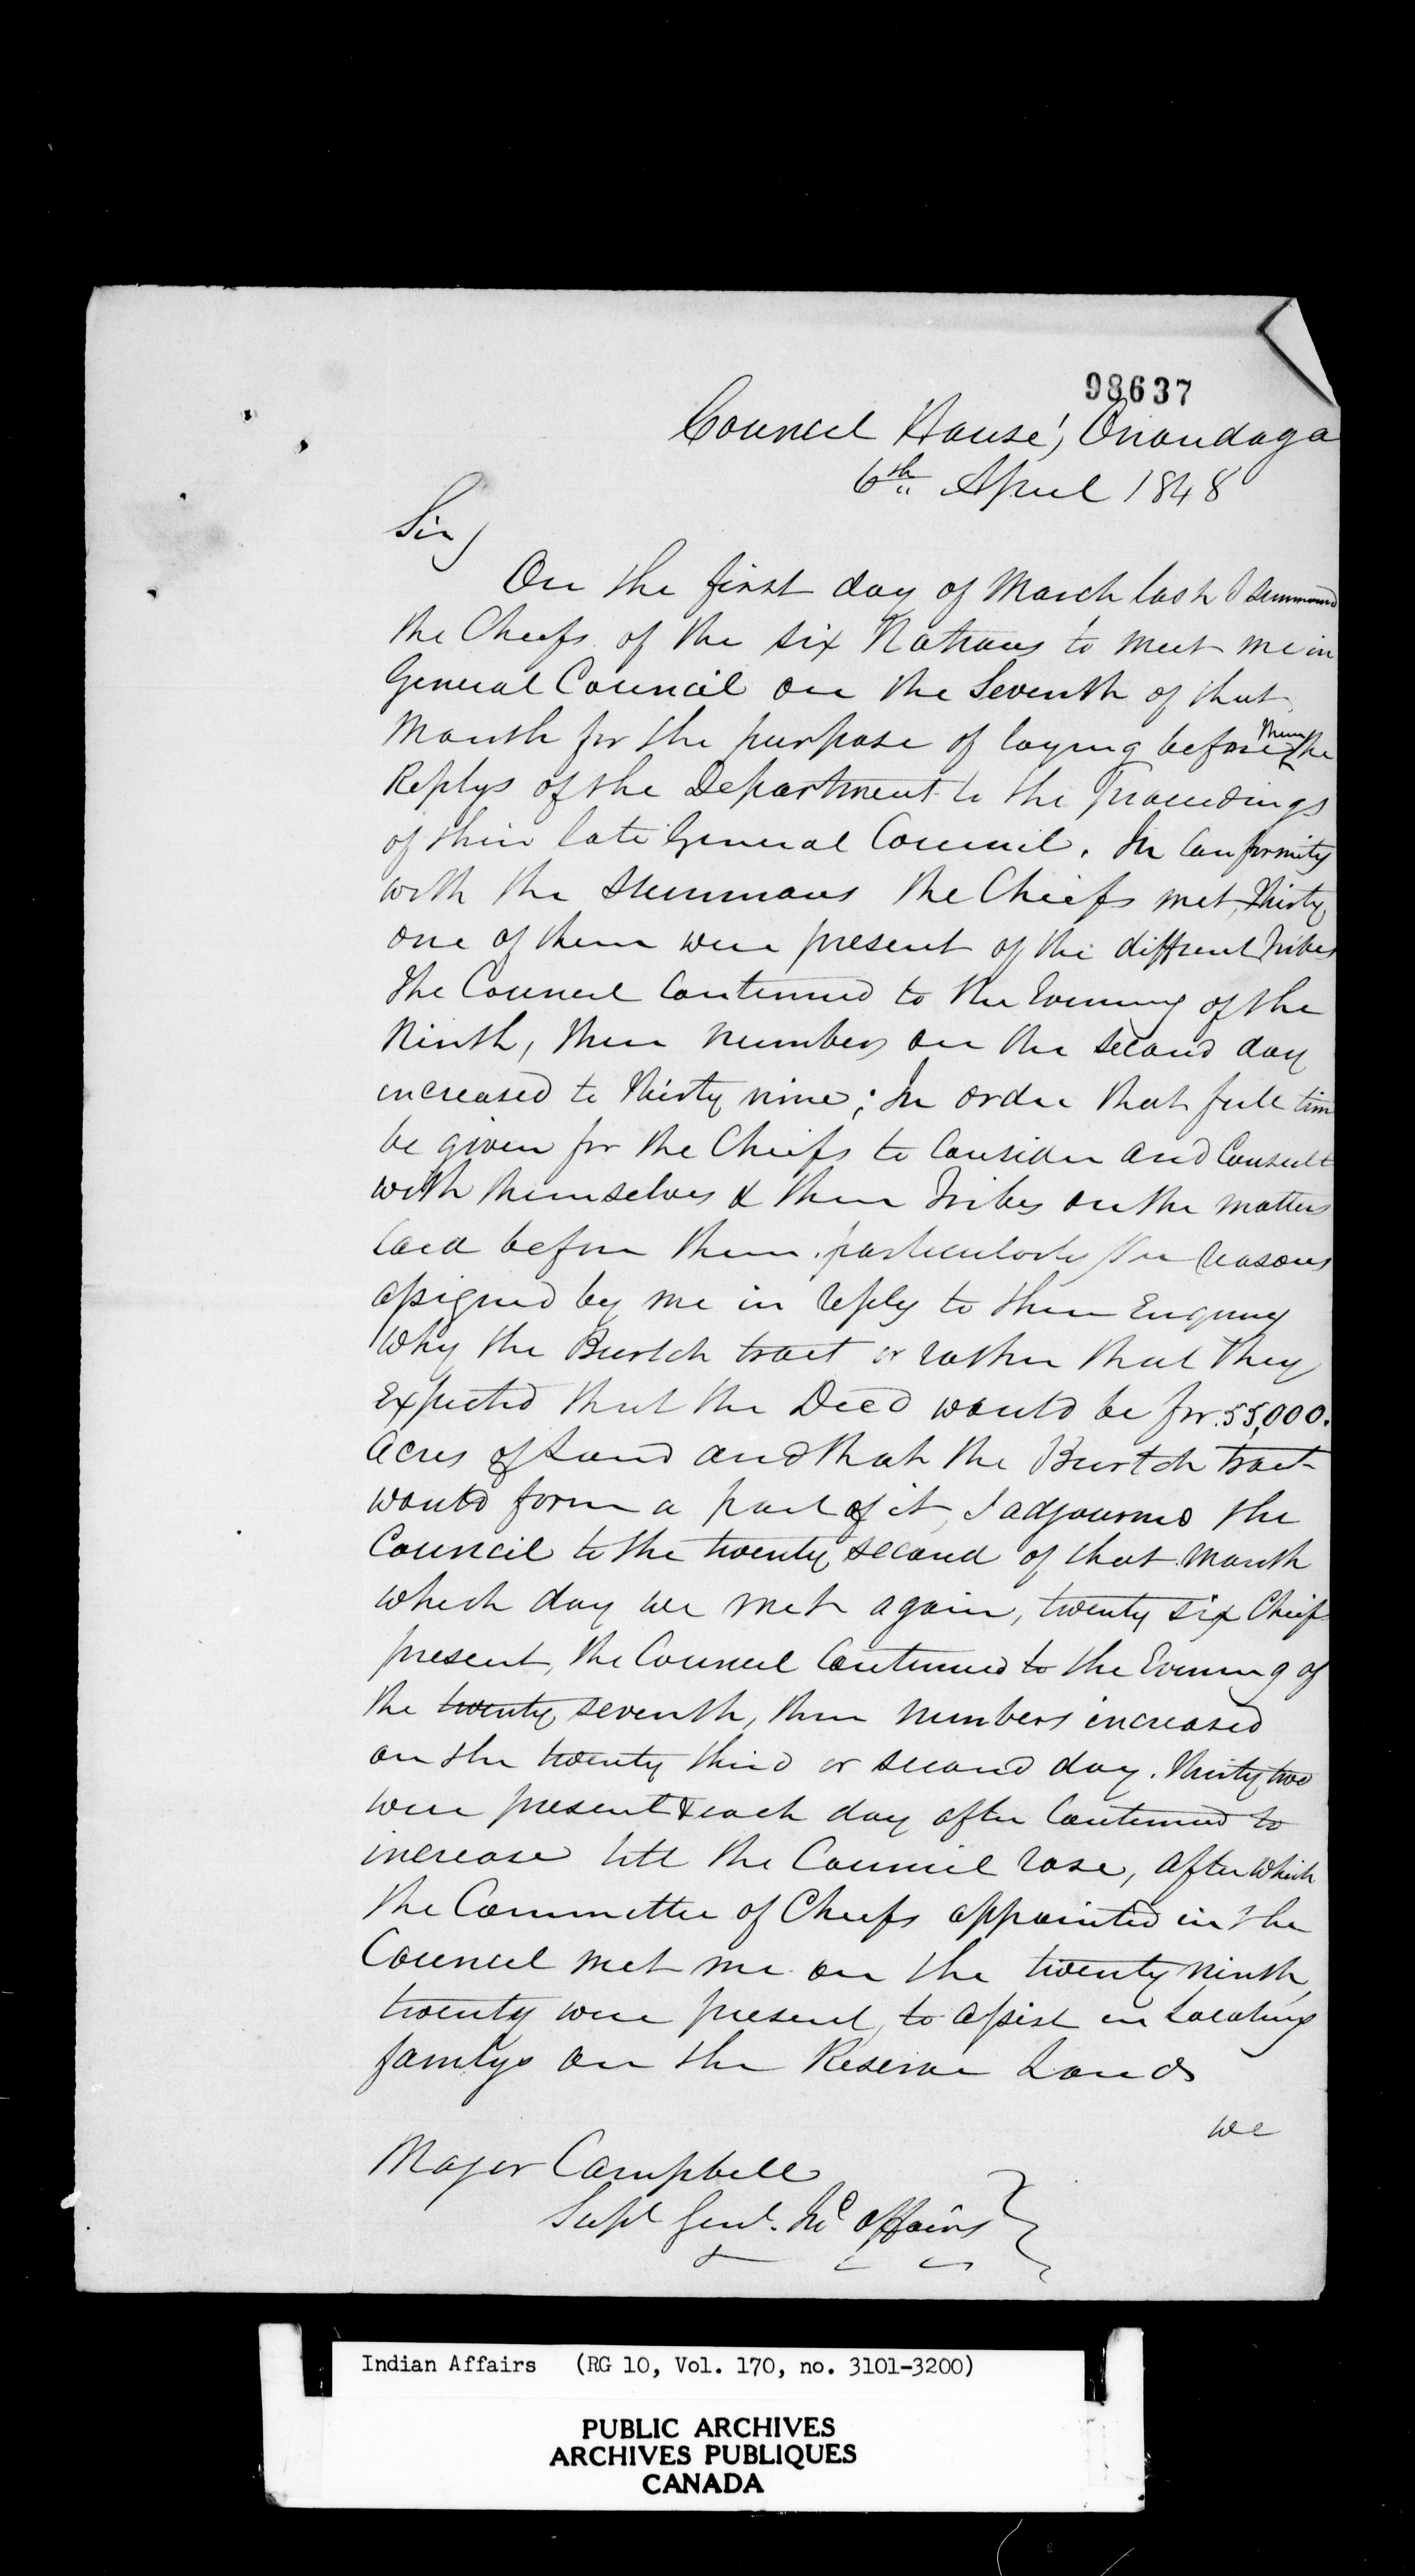 98637
Council House, Onondaga
6th April 1848
Sir,
On the first day of March last I summoned
the Cheefs of the six Nations to meet me in
General Council on the Seventh of that
Month for the purpose of laying before them the
Replys of the Department to the Proceedings
of their late General Council. In Conformity
with the Summons the Chiefs met, Thirty
one of them were present of the diffrent Tribes
The Council Continued to the Evening of the
Ninth, their numbers on the second day
increased to thirty nine; In order that full time
be given for the Chiefs to Consider and Consult
with themselves & their Tribes on the matters
laid before them, particularly the reasons
assigned by me in reply to their Enquiry
Why the Burtch tract or rather that they
Expected that the Deed would be for 55,000.
Acres of Land and that the Burtch tract
would form a part of it, I adjourned the
Council to the twenty second of that month
which day we met again, twenty six Chiefs
present, the Council Continued to the Evening of
the twenty seventh, their numbers increased
on the twenty third or second day. Thirty two
were present & each day after Continued to
increase till the Council rose, after which
the Committee of Chiefs appointed in the
Council met me on the twenty ninth,
twenty were present, to assist in Locating
familys on the Reserve Lands
we
Major Campbell
Supt Genl. Ind affairs
Indian Affairs (RG 10, Vol. 170, no. 3101-3200)
PUBLIC ARCHIVES
ARCHIVES PUBLIQUES
CANADA